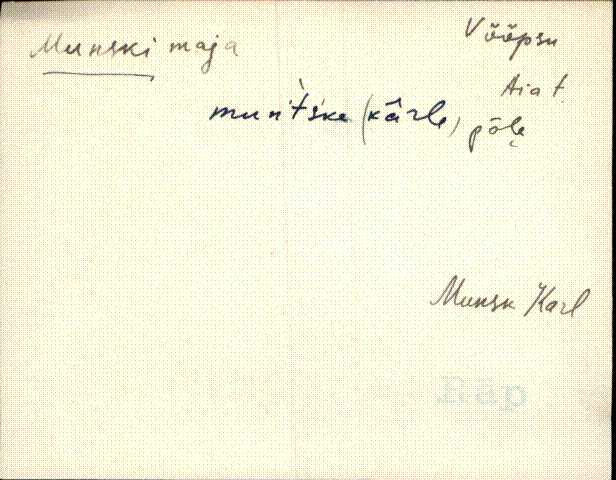 Munski maja
Vööpsu
Aia t.
muńt́śke (kārle) põle
Munsk Karl
Räp